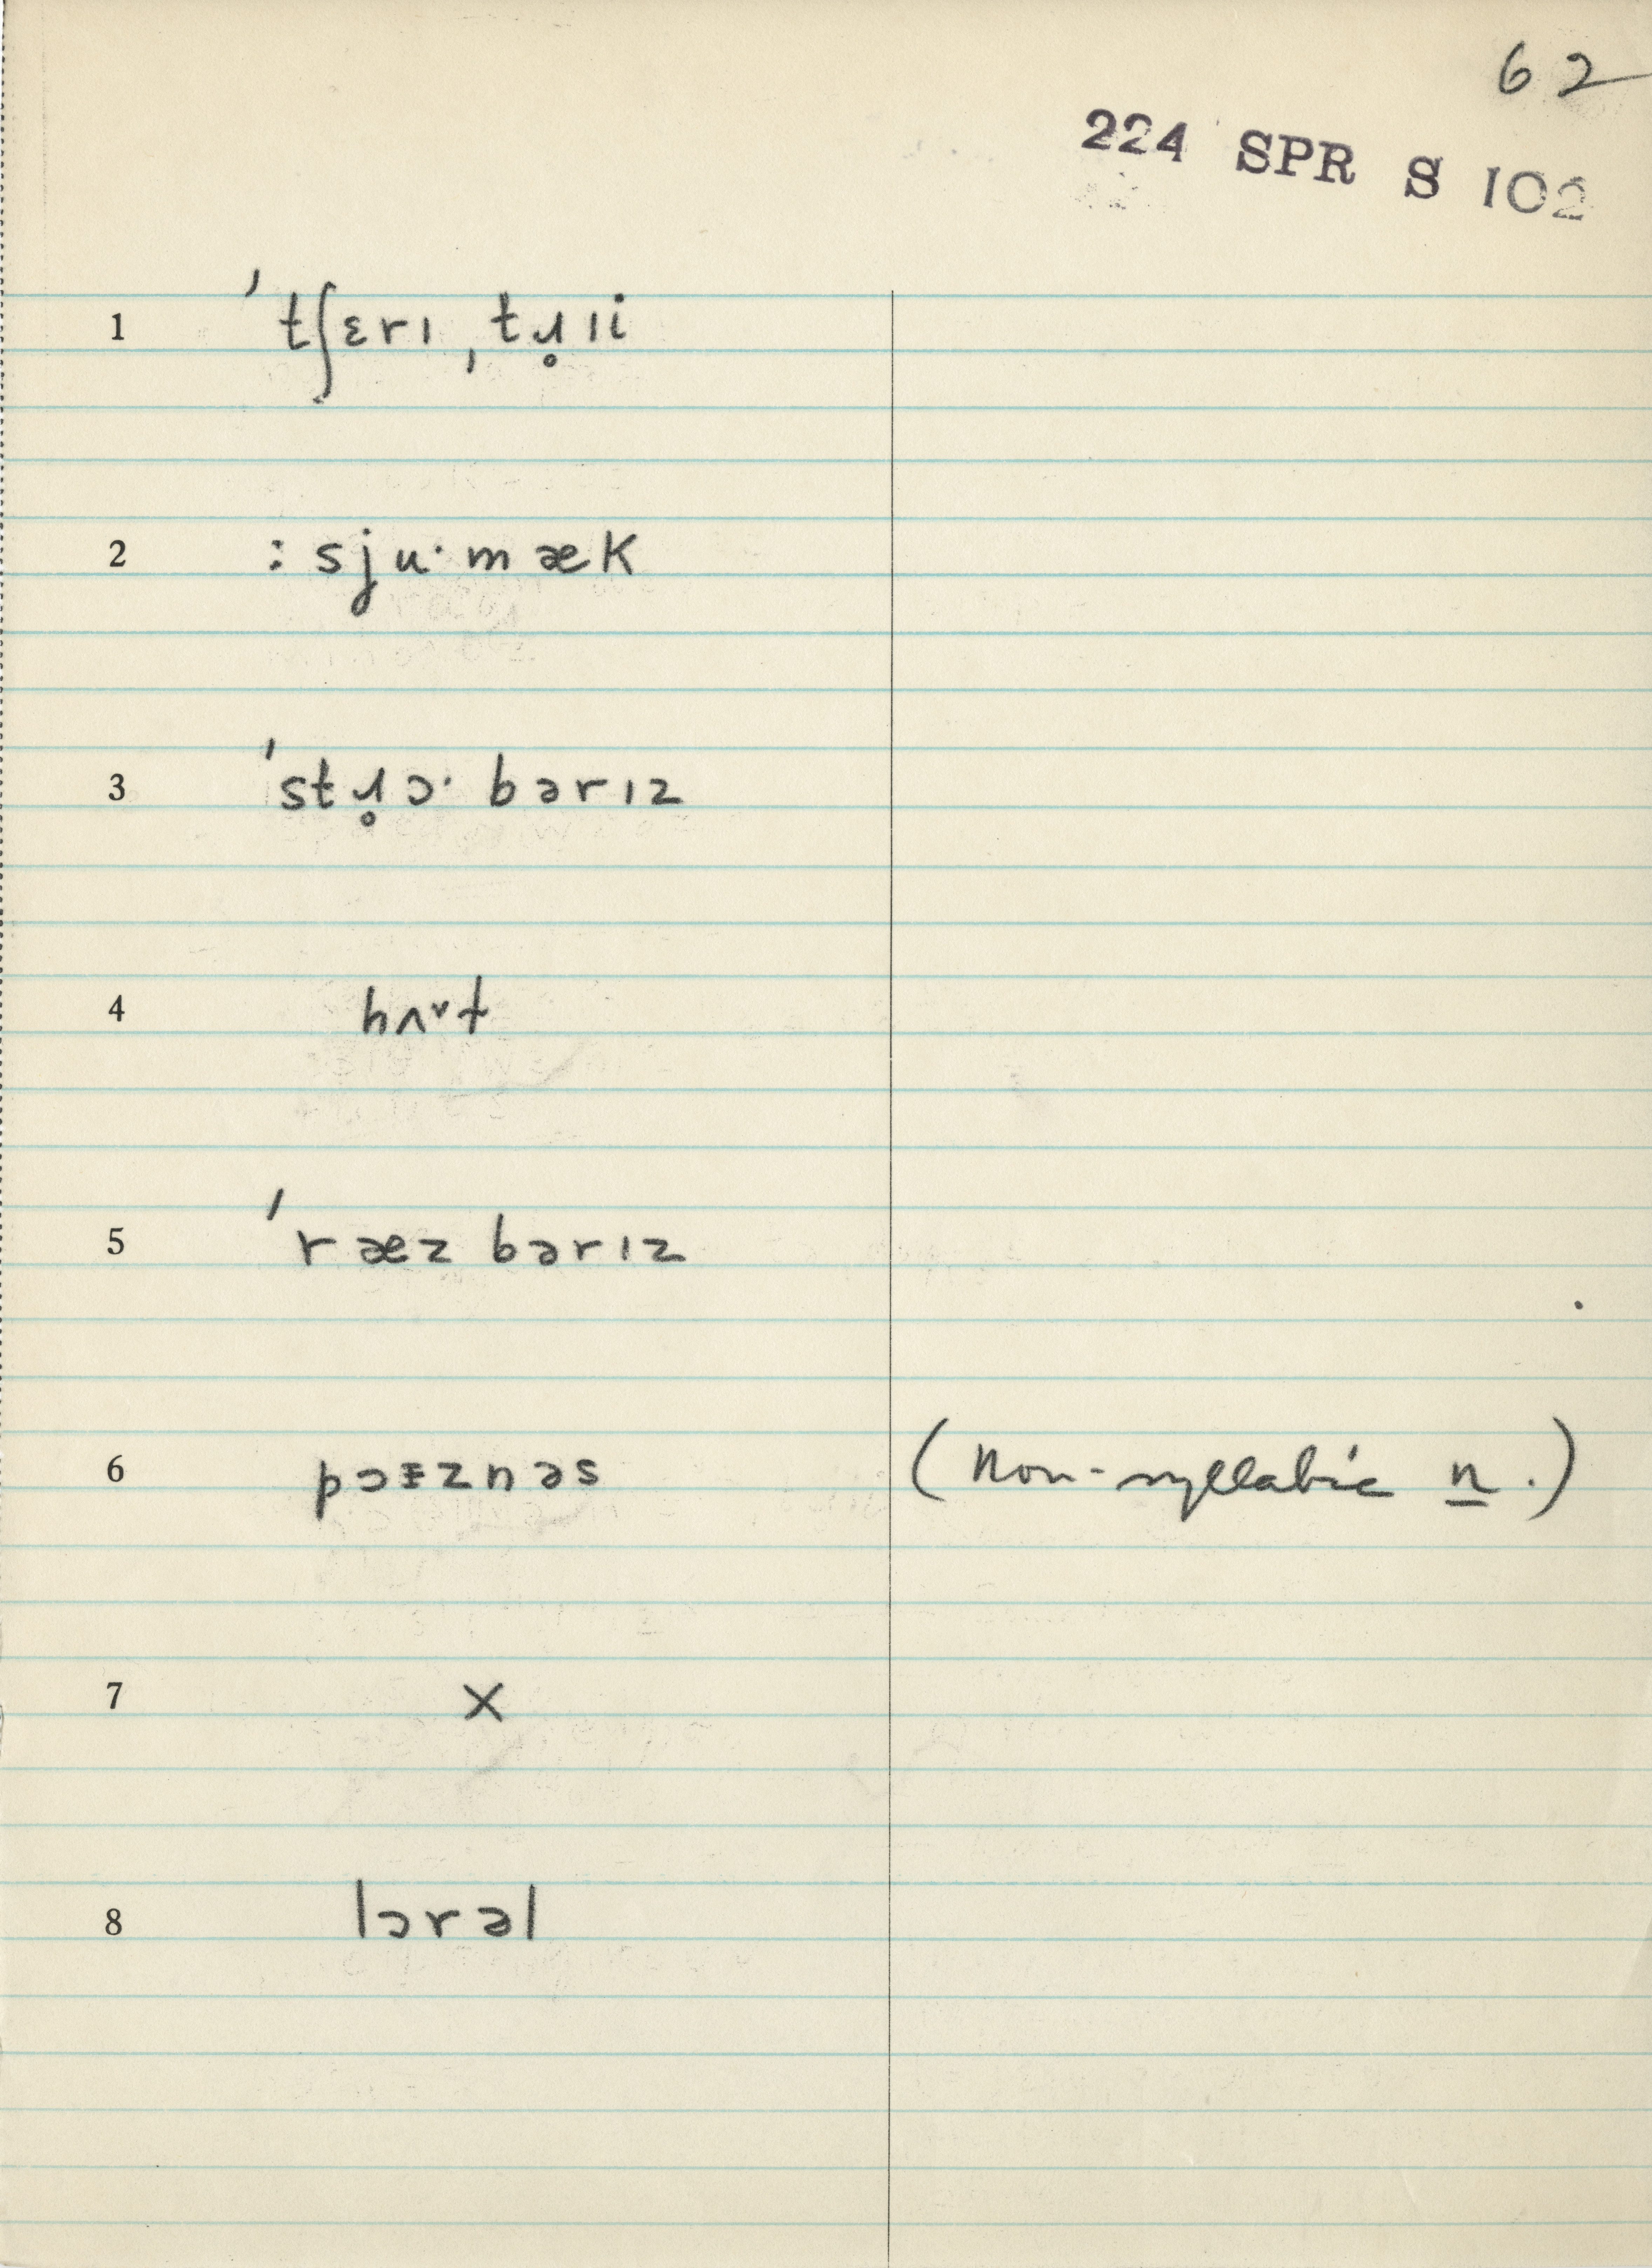 62
224 SPR S 102
1 ˈtʃɛrɪ ˌtɹ̥ɪi
2 : sjuˑmæk
3 ˈstɹ̥ɔˑbərɪz
4 hʌᵛt
5 ˈræzbərɪz
6 pɔɨznəs (non-syllabic n.)
7 X
8 lɔrəl